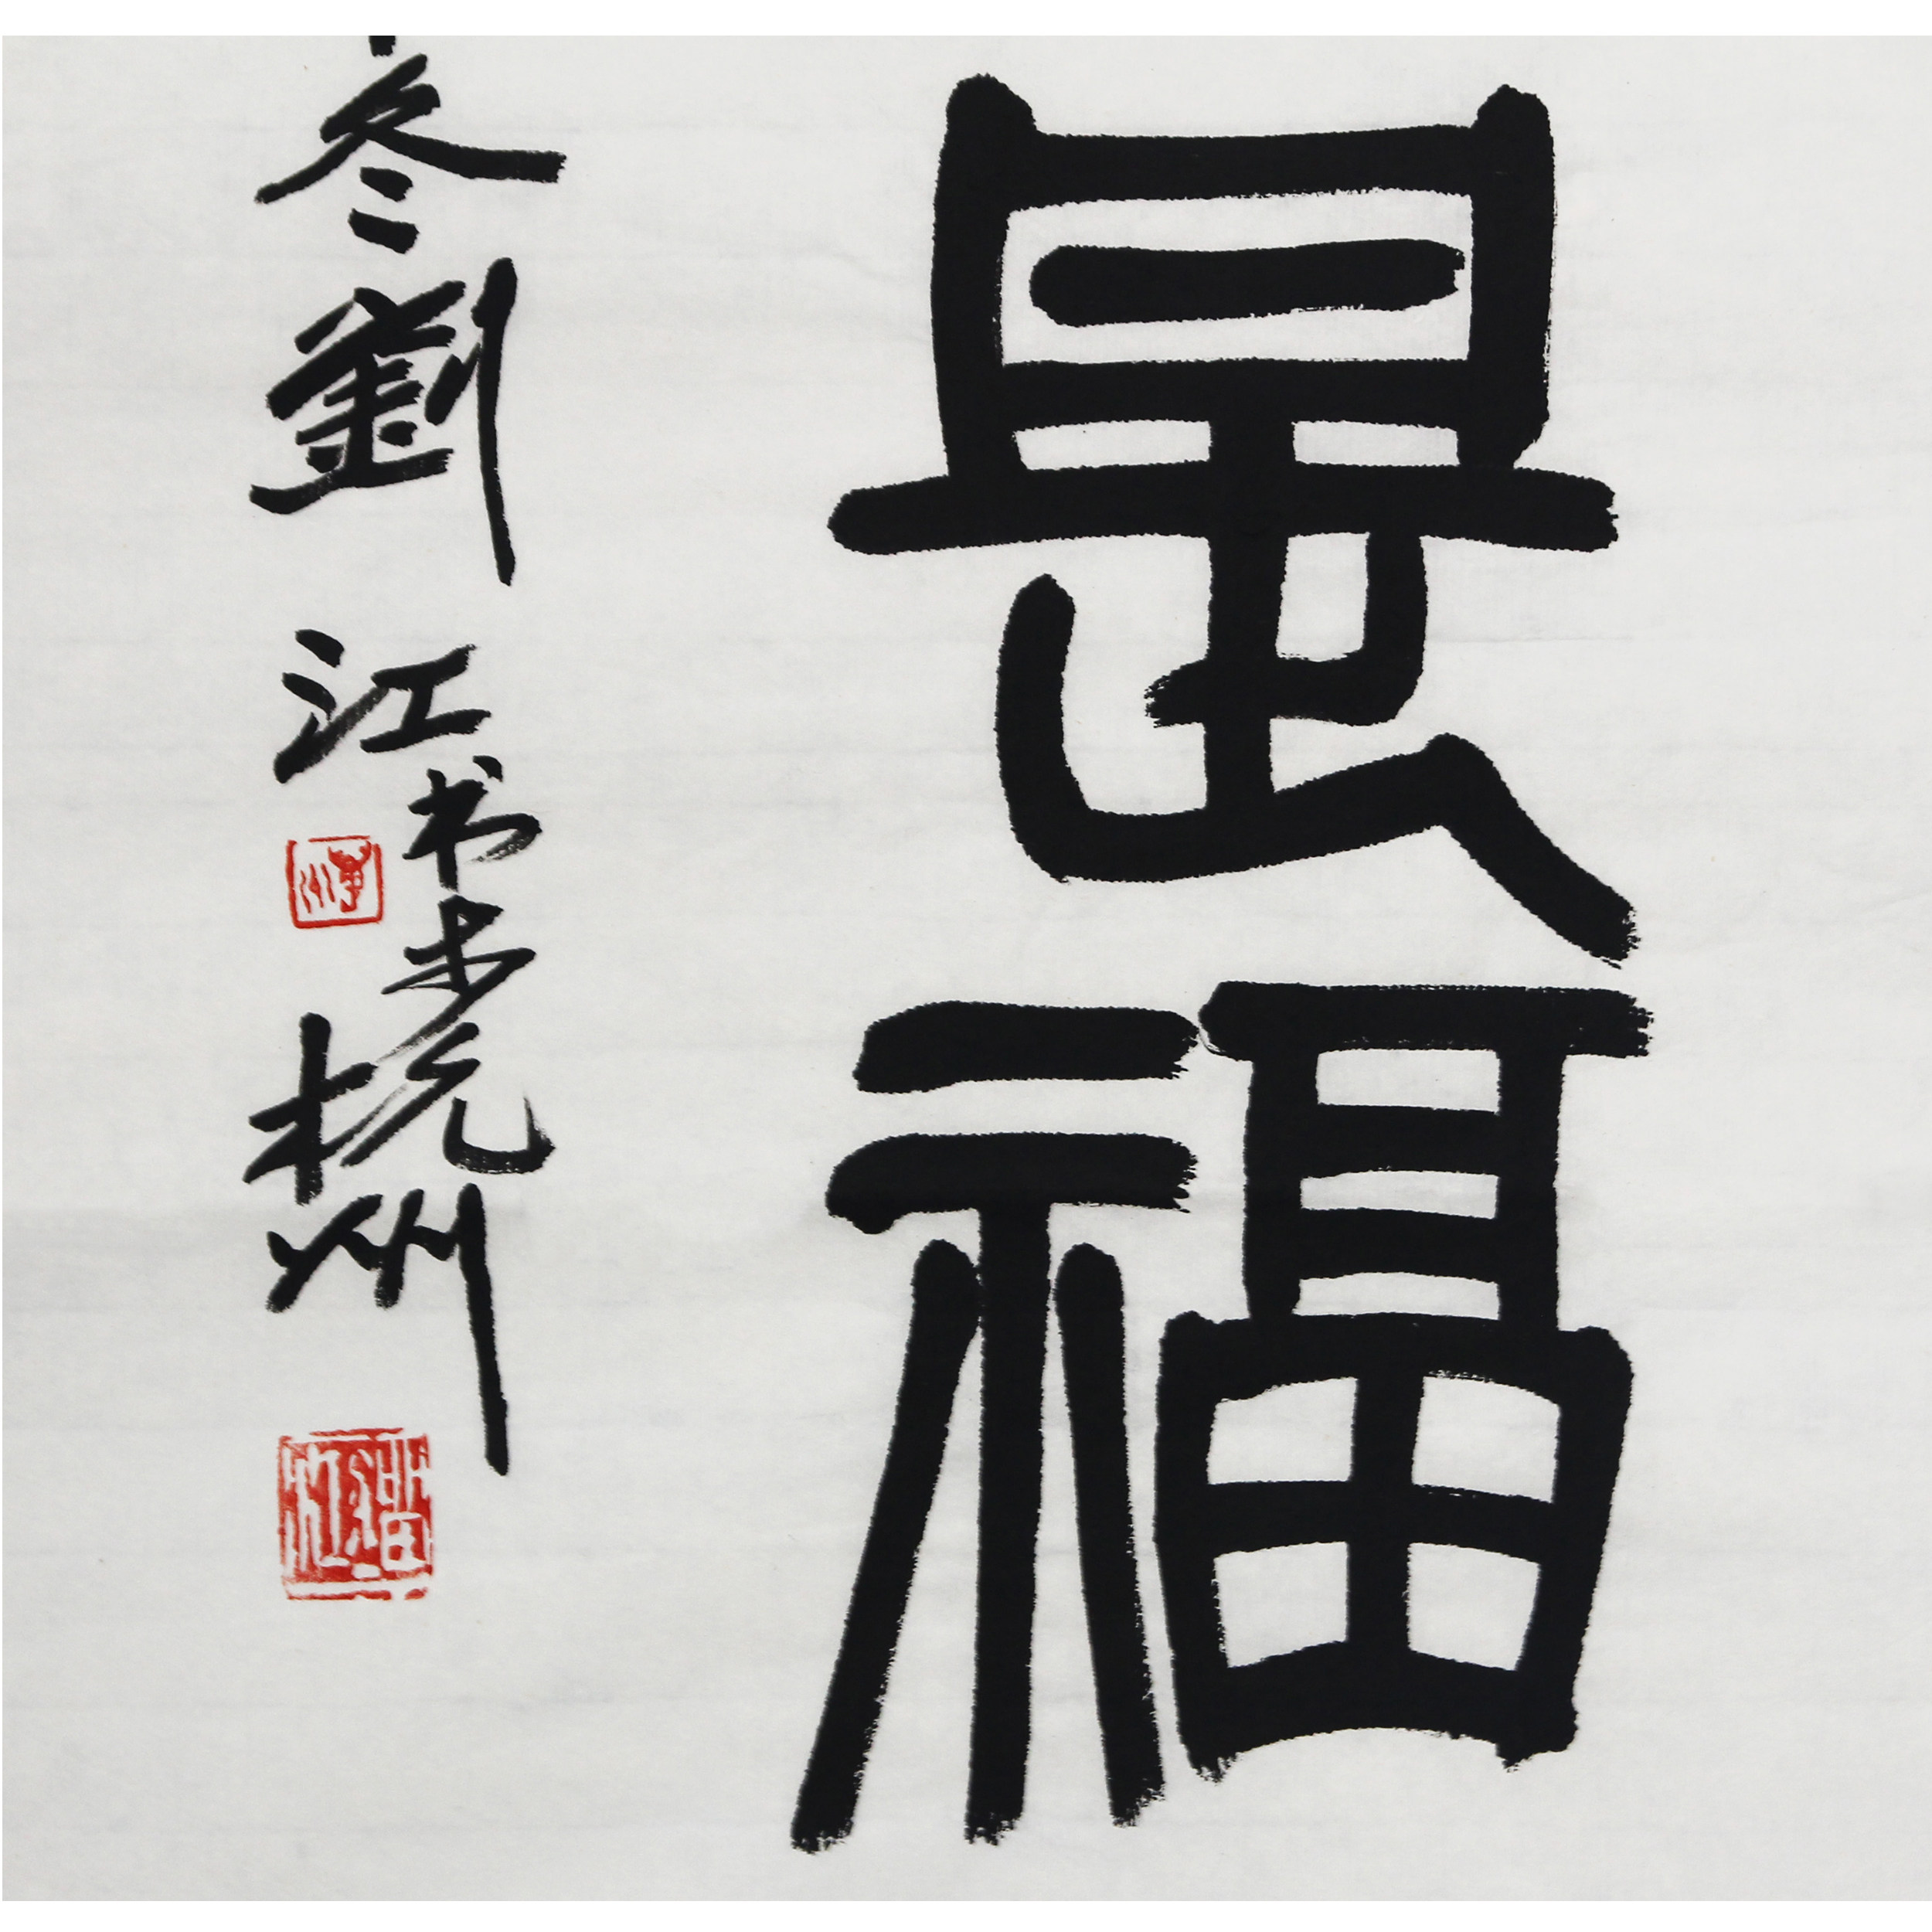 是福
冬劉江书於杭州